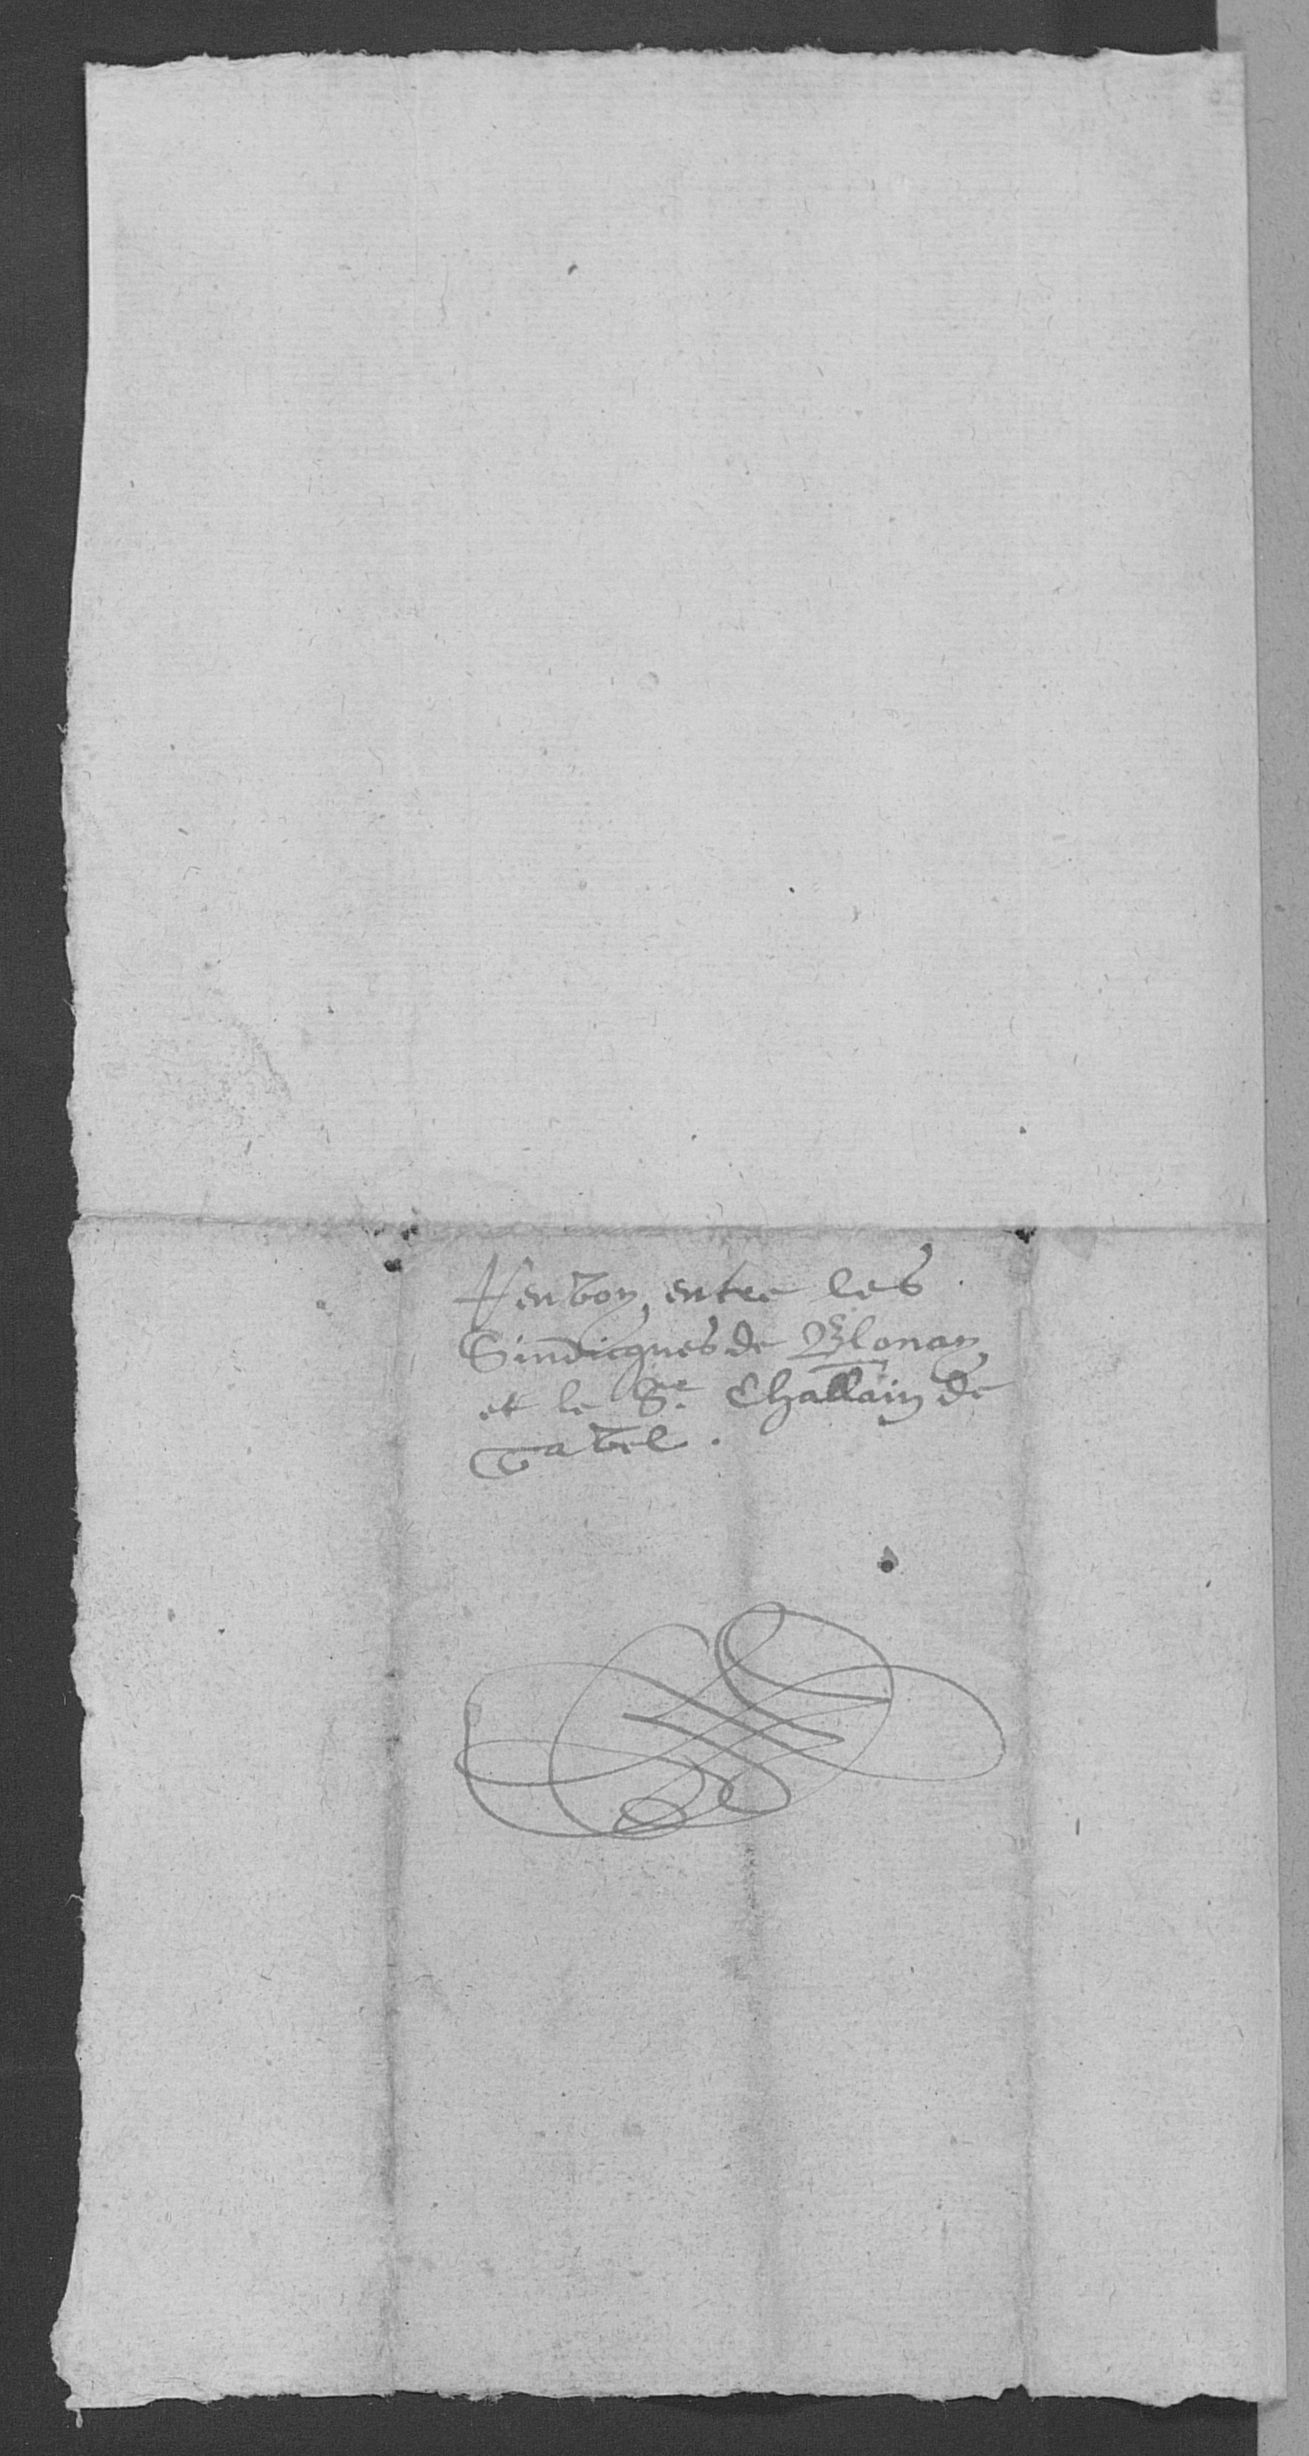 Renvoy entre les
Sindicques de Blonay
et le Sr. Challain de
Tavel.